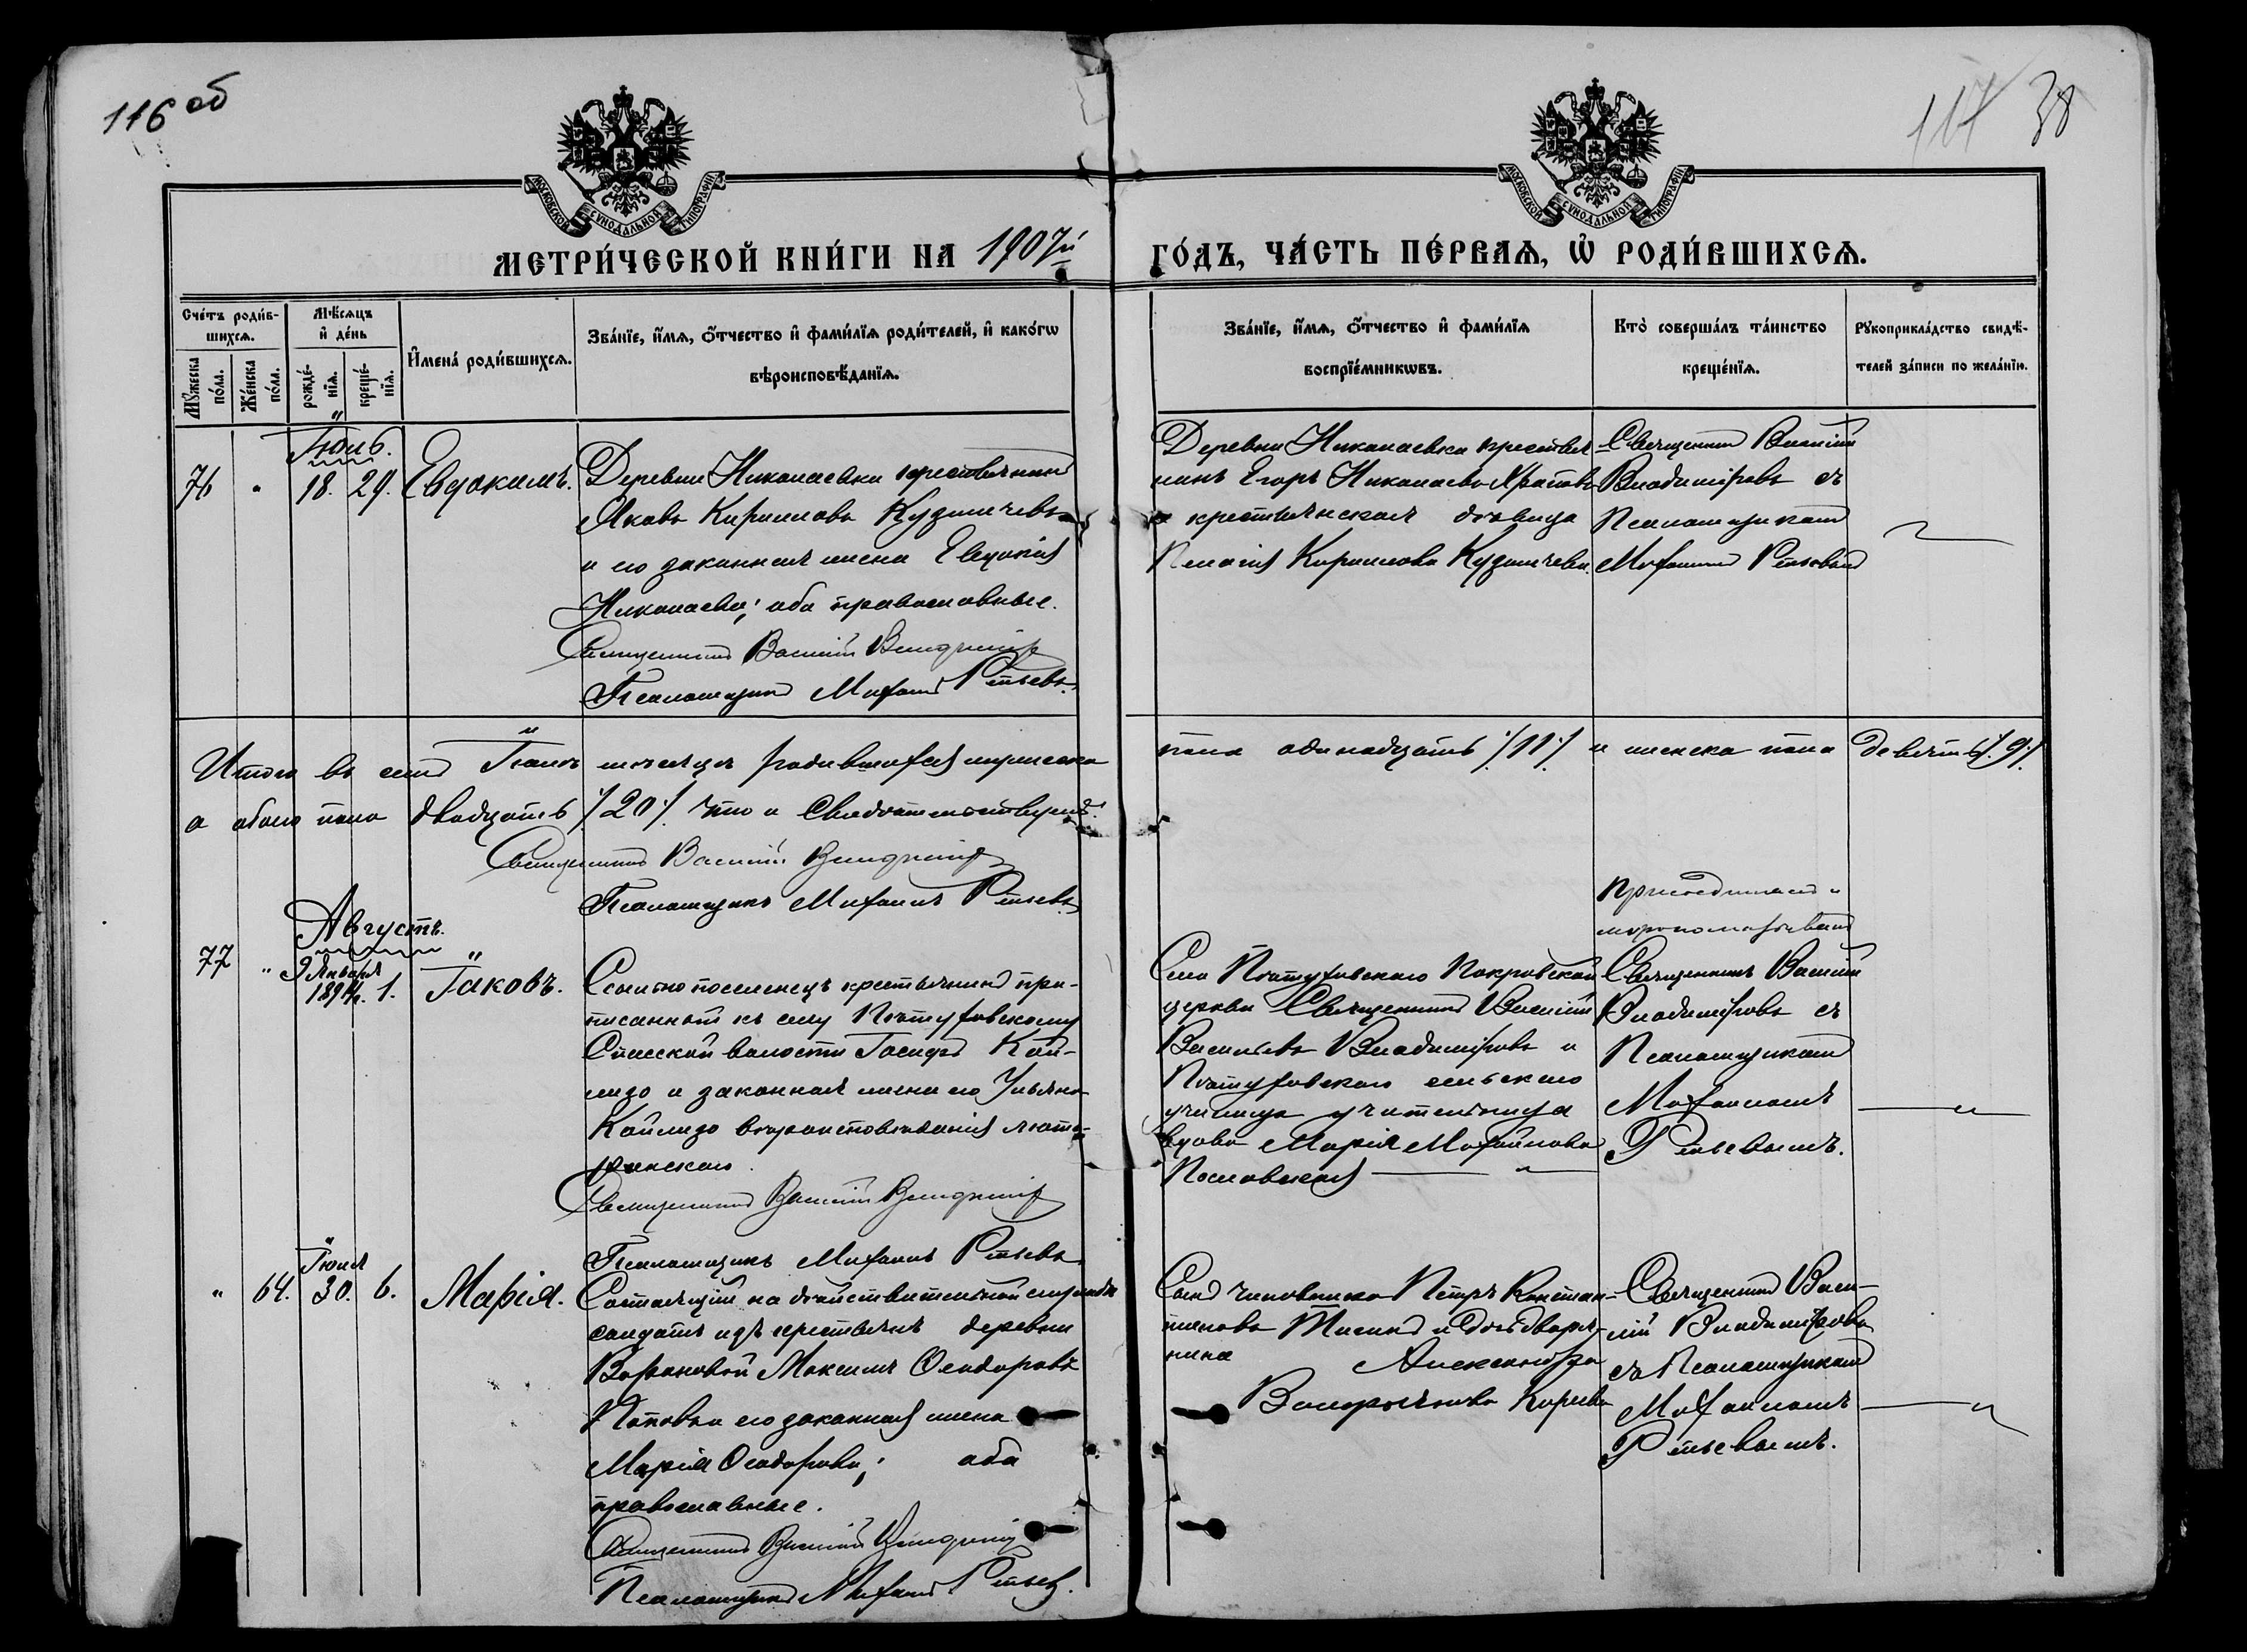 116 об
117 38
МОСКОВСКОЙ СѴНОДАЛЬНОЙ ТИПОГРАФІИ
МОСКОВСКОЙ СѴНОДАЛЬНОЙ ТИПОГРАФІИ
МЕТРИ́ЧЕСКОЙ КНИ́ГИ НА 1907й ГО́ДЪ, ЧА́СТЬ ПЕ́РВАѦ, Ѡ РОДИ́ВШИХСѦ.
Сче́тъ роди́в-
шихсѧ.
Мꙋ́жеска
по́ла.
Же́нска
по́ла.
Мѣ́сѧцъ
и де́нь
рожде́-
нїѧ.
креще́-
нїѧ.
Имена́ роди́вшихсѧ.
Зва́нїе, и́мѧ, о́тчество и фами́лїѧ роди́телей, и како́гѡ
вѣроисповѣ́данїѧ.
Зва́нїе, и́мѧ, о́тчество и фами́лїѧ
воспрїе́мникѡвъ.
Кто̀ соверша́лъ та́инство
креще́нїѧ.
Рꙋкоприкла́дство свидѣ́-
телей за́писи по жела́нїю.
Іюль.
76 " 18. 29. Евдокимъ.
Деревни Николаевки крестьянинъ
Яковъ Кирилловъ Кузмичевъ
и его законная жена Евдокія
Николаева; оба православные.
Священникъ Василій Владиміровъ
Псаломщикъ Михаилъ
Деревни Николаевки крестья
нинъ Егоръ Николаевъ
и крестьянская дѣвица
Пелагія Кириллова Кузмичева.
Священникъ Василій
Владиміровъ съ
Псаломщикомъ
Михаиломъ
Итого въ семъ Іюлѣ мѣсяцѣ родившихся мужеска пола одинадцать /11/ и женска пола девять /9/.
а обоего пола двадцать /20/ что и свидѣтельствуемъ.
Священникъ Василій Владиміровъ
Псаломщикъ Михаилъ
Августъ.
77 " 9 Января
1894 г. 1. Іаковъ.
Ссыльнопоселенецъ крестьянинъ при-
писанный къ селу
Спасской волости
и законная жена его Ульяна
вѣроисповѣданія люте-
ранскаго.
Священникъ Василій Владиміровъ
Псаломщикъ Михаилъ
Села Покровской
церкви Священникъ Василій
Васильевъ Владиміровъ и
сельскаго
училища учительница
вдова Марія Михайлова
Присоединилъ и
мѵропомазывалъ
Священникъ Василій
Владиміровъ съ
Псаломщикомъ
Михаиломъ
Іюля
" 64. 30. 6. Марія.
Состоящій на дѣйствительной службѣ
солдатъ изъ крестьянъ деревни
Вороновой Максимъ Ѳеодоровъ
и его законная жена
Марія Ѳеодорова; оба
православные.
Священникъ Василій Владиміровъ
Псаломщикъ Михаилъ
Сынъ чиновника Петръ Констан-
тиновъ и дочь дворя-
нина Александра
Священникъ Васи-
лій Владиміровъ
съ Псаломщикомъ
Михаиломъ